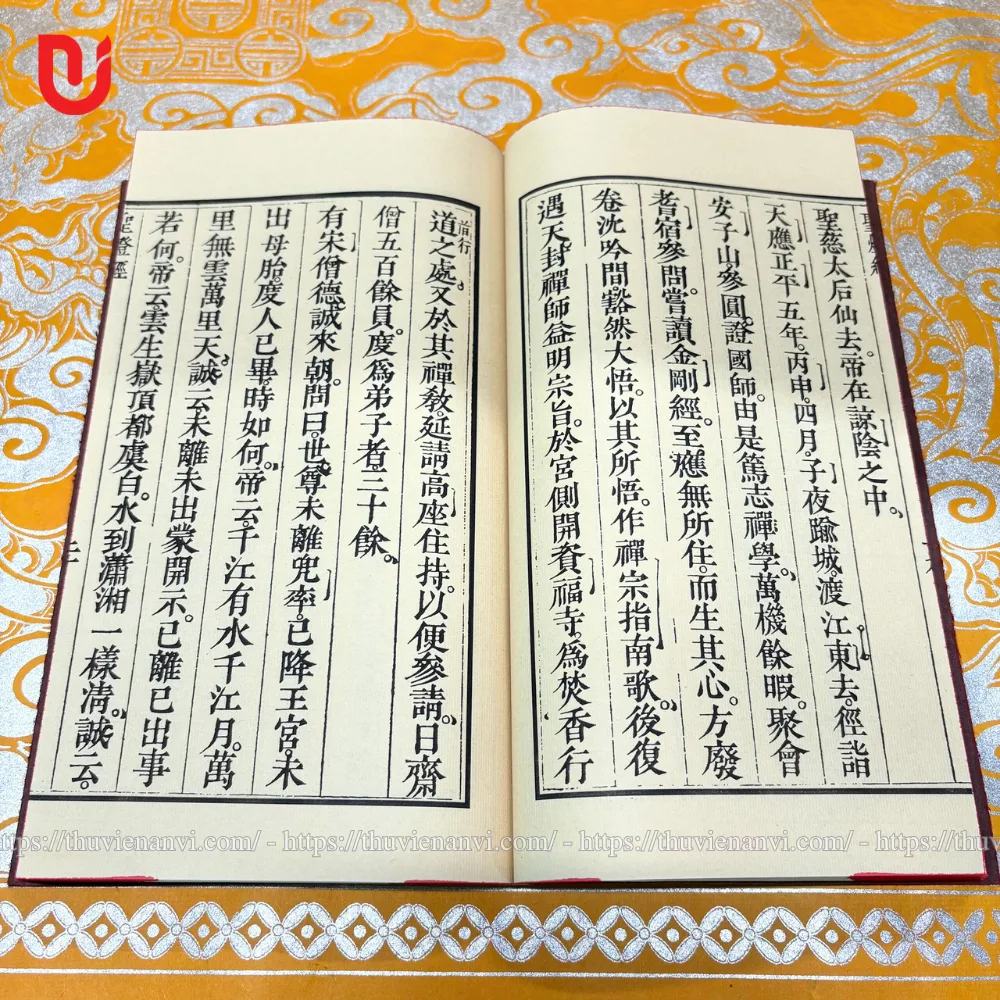 聖慈太后仙去。帝在諒陰之中。
天應正平五年。丙申。四月。子夜踰城。渡江東去。徑詣
安子山。參圓證國師。由是篤志禪學。萬機餘暇。聚會
耆宿參問。嘗讀金剛經。至應無所住。而生其心。方廢
卷沈吟間。豁然大悟。以其所悟。作禪宗指南歌。後復
遇天封禪師益明宗旨。於宮側開資福寺。爲焚香行
道之處。又於其禪教。延請高座住持。以便參請。日齋
僧五百餘員。度爲弟子者。三十餘。
有宋僧德誠來朝。問曰。世尊未離兜率。已降王宮。未
出母胎度人已畢。時如何。帝云。千江有水千江月。萬
里無雲萬里天。誠云未離未出蒙開示。已離已出事
若何。帝云雲生嶽頂都盧白。水到瀟湘一樣清。誠云。
聖燈經
https://thuvienanvi.com/ - https://thuvienanvi.com/ - https://thuvienanvi.com/ - https://thuvienanvi.com/